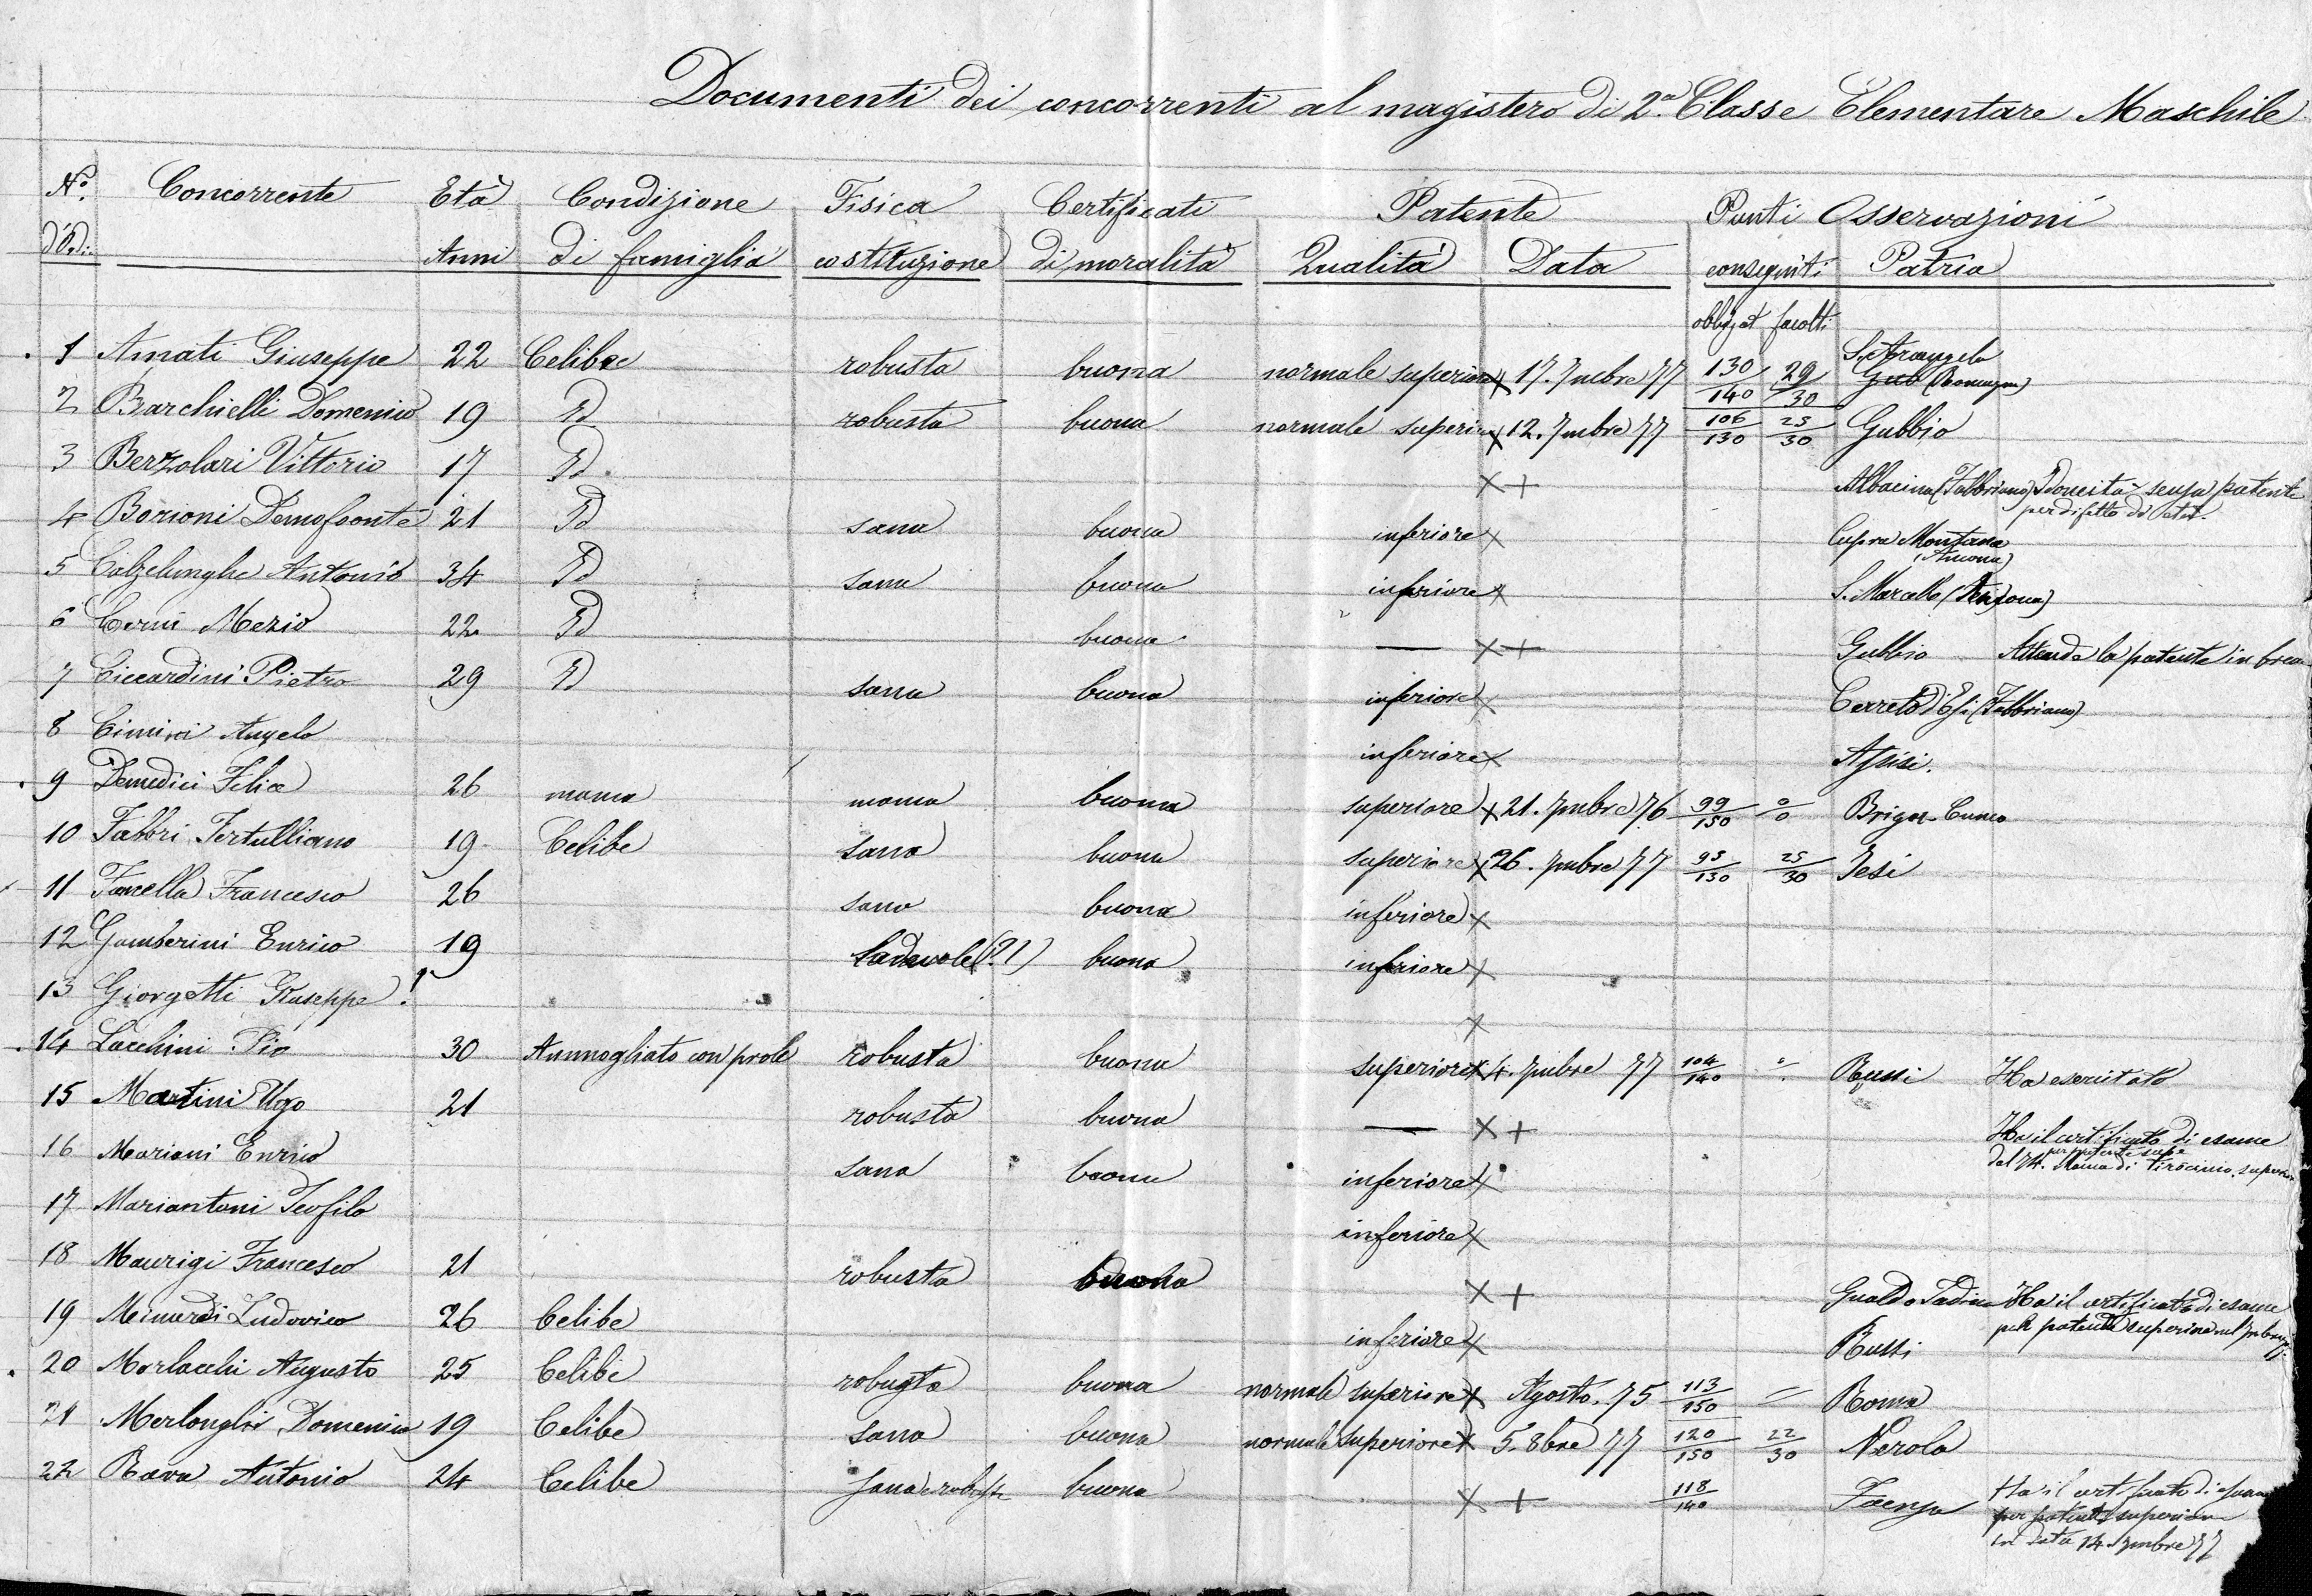 Documenti dei concorrenti al magistero di 2.a Classe Elementare Maschile
No. Concorrente Età Condizione Fisica Certificati Patente Punti Osservazioni
d'Ordi. Anni di famiglia costituzione di moralità Qualità Data conseguiti Patria
obbligat facolti
1 Amati Giuseppe 22 Celibe robusta buona normale superiore x 17. 7mbre 77 130/140 29/30 S. Arcangelo
Gub (Romagna)
2 Barchielli Domenico 19 Id robusta buona normale superiore x 12. 7mbre 77 106/130 25/30 Gubbio
3 Berzolari Vittorio 17 Id. x + Albacina (Fabbriano) Idoneità senza patente
per difetto di età.
4 Borioni Demofoonte 21 Id sana buona inferiore x Cupra Montana
(Ancona)
5 Colzelunghe Antonio 34 Id sana buona inferiore x S. Marcello (Ancona)
6 Cerni Mezio 22 Id buona — x + Gubbio Attende la patente in breve
7 Ciccardini Pietro 29 Id sana buona inferiore x Cerreto d'Esi (Fabbriano)
8 Cimini Angelo inferiore x Assisi.
9 Demedici Felice 26 manca manca buona superiore x 21. 7mbre 76 99/150 0/0 Briga Cuneo
10 Fabbri Tertulliano 19 Celibe sana buona superiore x 26. 7mbre 77 93/130 25/30 Jesi
11 Fancella Francesco 26 sana buona inferiore x
12 Gamberini Enrico 19 buona inferiore x
13 Giorgetti Giuseppe! x
14 Lacchini Pio 30 Ammogliato con prole robusta buona superiore x 4. 7mbre 77 104/140 Russi Ha esercitato
15 Martini Ugo 21 robusta buona — x + Ha il certificato di esame
per patente supe
dal 74. Manca di tirocinio. superior
16 Mariani Enrico sana buona inferiore x
17 Mariantoni Teofilo inferiore x
18 Maurigi Francesco 21 robusta buona x + Gualdo Tadino Ha il certificato di esame
per patente superiore nel 7mbre 77.
19 Meinardi Ludovico 26 Celibe inferiore x Russi
20 Morlacchi Augusto 25 Celibe robusta buona normale superiore x Agosto. 75 113/150 Roma
21 Merlonghi Domenico 19 Celibe sana buona normale superiore x 5. 8bre 77 120/150 22/30 Nerola
22 Rava Antonio 24 Celibe Sana e robusta buona x + 118/140 Faenza Ha il certificato di esame
per patente superiore
in data 14 7mbre 77